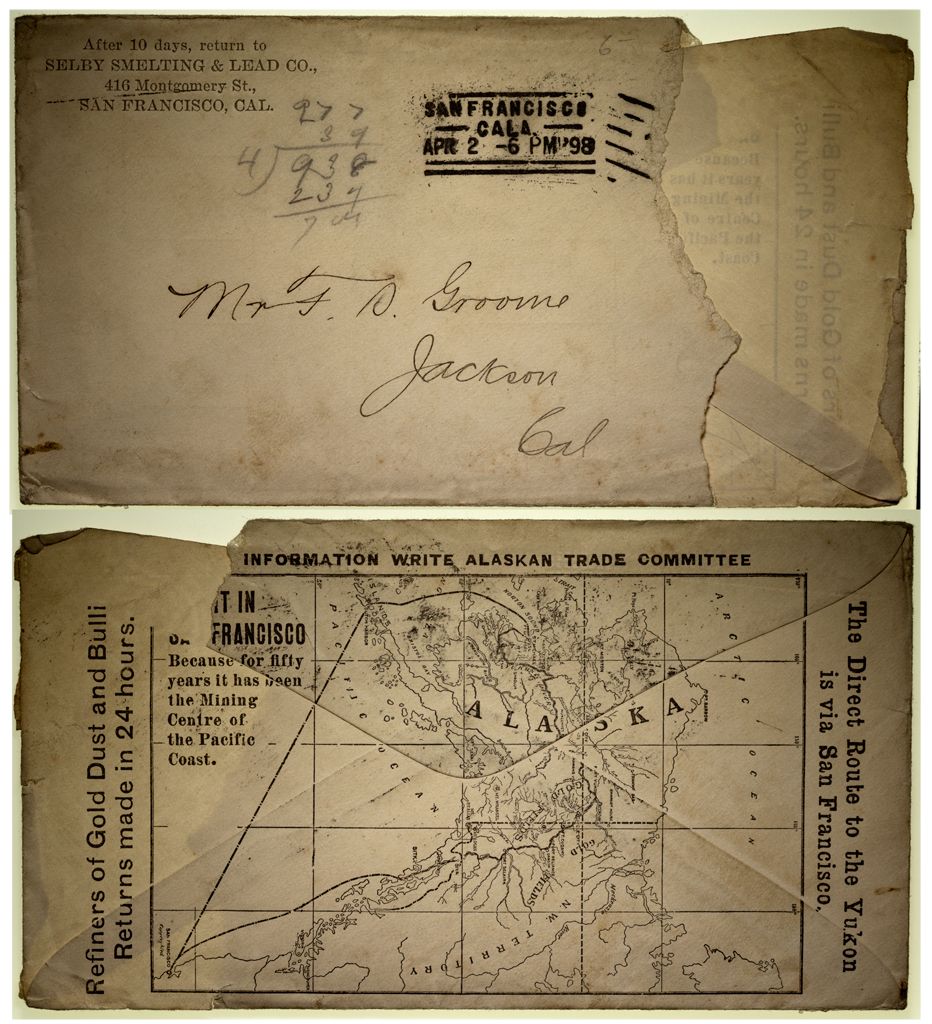 After 10 days, return to
SELBY SMELTING & LEAD CO.,
416 Montgomery St.,
SAN FRANCISCO, CAL.
6-
SAN FRANCISCO
CALA.
APR 2 -6 PM '98
39
4) 938
234
Mr F. D. Groome
Jackson
Cal
INFORMATION WRITE ALASKAN TRADE COMMITTEE
IT IN
FRANCISCO
Because for fifty
years it has been
the Mining
Centre of
the Pacific
Coast.
Refiners of Gold Dust and Bulli
Returns made in 24 hours.
The Direct Route to the Yukon
is via San Francisco.
ALASKA
PACIFIC OCEAN
ARCTIC OCEAN
GOLD
FIELDS
GOLD
FIELDS
N.W. TERRITORY
SAN FRANCISCO